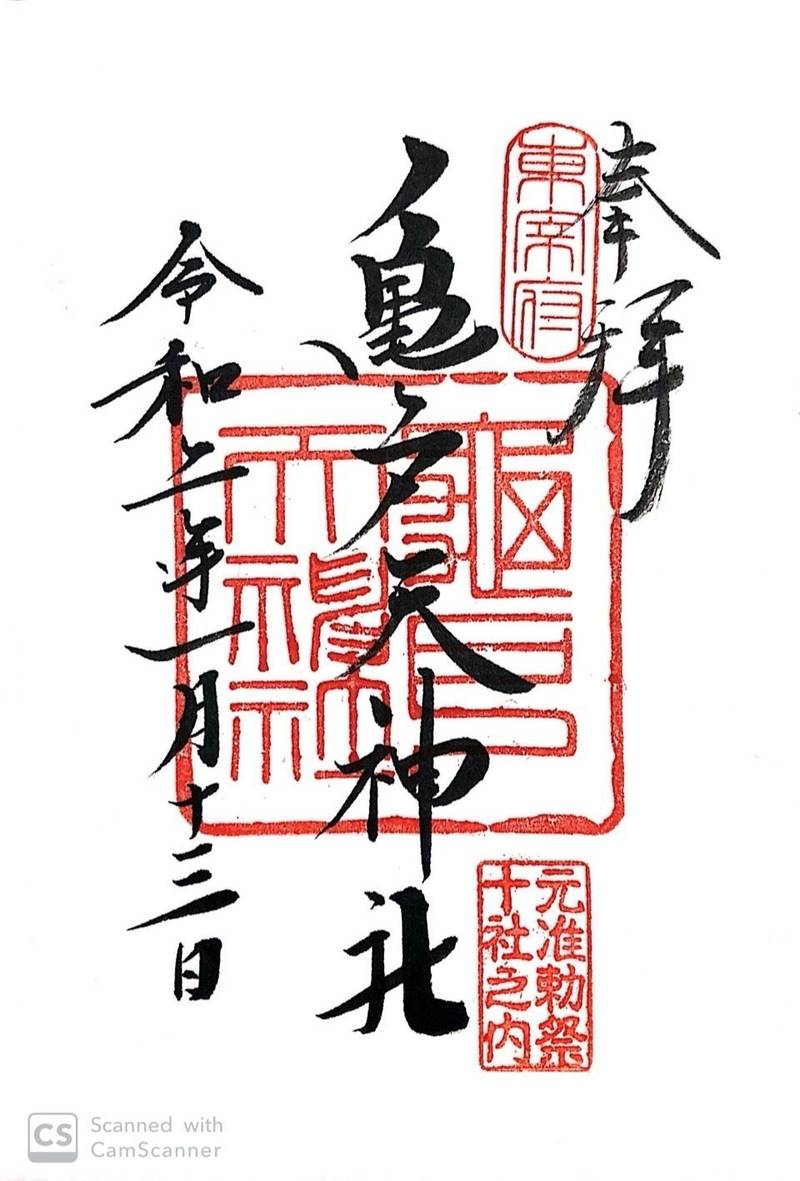 奉拝
東宰府
亀戸天神社
亀戸天神社
元准勅祭
十社之内
令和二年一月十三日
CS Scanned with
CamScanner